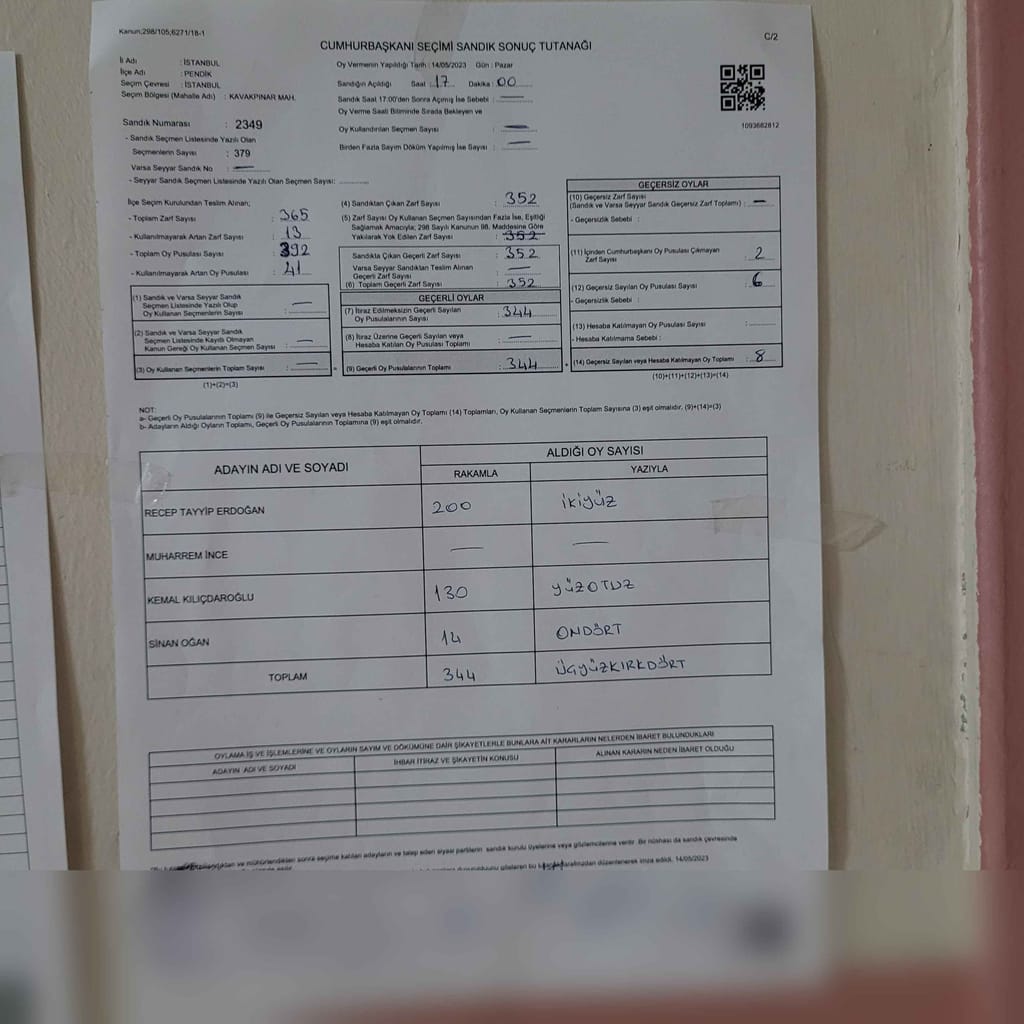 Kanun;298/105,6271/18-1
C/2
CUMHURBAŞKANI SEÇİMİ SANDIK SONUÇ TUTANAĞI
İl Adı : İSTANBUL
İlçe Adı : PENDİK
Seçim Çevresi : İSTANBUL
Seçim Bölgesi (Mahalle Adı) : KAVAKPINAR MAH.
Sandık Numarası : 2349
- Sandık Seçmen Listesinde Yazılı Olan
Seçmenlerin Sayısı : 379
Varsa Seyyar Sandık No : —
- Seyyar Sandık Seçmen Listesinde Yazılı Olan Seçmen Sayısı: ............
Oy Vermenin Yapıldığı Tarih : 14/05/2023 Gün : Pazar
Sandığın Açıldığı Saat : 17 Dakika : 00
Sandık Saat 17:00'den Sonra Açımış İse Sebebi : —
Oy Verme Saati Bitiminde Sırada Bekleyen ve
Oy Kullandırılan Seçmen Sayısı : —
Birden Fazla Sayım Döküm Yapılmış İse Sayısı : —
1093682812
İlçe Seçim Kurulundan Teslim Alınan;
- Toplam Zarf Sayısı : 365
- Kullanılmayarak Artan Zarf Sayısı : 13
- Toplam Oy Pusulası Sayısı : 392
- Kullanılmayarak Artan Oy Pusulası : 41
(1) Sandık ve Varsa Seyyar Sandık
Seçmen Listesinde Yazılı Olup
Oy Kullanan Seçmenlerin Sayısı : —
(2) Sandık ve Varsa Seyyar Sandık
Seçmen Listesinde Kayıtlı Olmayan
Kanun Gereği Oy Kullanan Seçmen Sayısı : —
(3) Oy Kullanan Seçmenlerin Toplam Sayısı : —
(1)+(2)=(3)
(4) Sandıktan Çıkan Zarf Sayısı : 352
(5) Zarf Sayısı Oy Kullanan Seçmen Sayısından Fazla İse, Eşitliği
Sağlamak Amacıyla; 298 Sayılı Kanunun 98. Maddesine Göre
Yakılarak Yok Edilen Zarf Sayısı : 352
Sandıkla Çıkan Geçerli Zarf Sayısı : 352
Varsa Seyyar Sandıktan Teslim Alınan
Geçerli Zarf Sayısı : —
(6) Toplam Geçerli Zarf Sayısı : 352
GEÇERLİ OYLAR
(7) İtiraz Edilmeksizin Geçerli Sayılan
Oy Pusulalarının Sayısı : 344
(8) İtiraz Üzerine Geçerli Sayılan veya
Hesaba Katılan Oy Pusulası Toplamı : —
(9) Geçerli Oy Pusulalarının Toplamı : 344
GEÇERSİZ OYLAR
(10) Geçersiz Zarf Sayısı
(Sandık ve Varsa Seyyar Sandık Geçersiz Zarf Toplamı) : —
- Geçersizlik Sebebi :
(11) İçinden Cumhurbaşkanı Oy Pusulası Çıkmayan
Zarf Sayısı : 2
(12) Geçersiz Sayılan Oy Pusulası Sayısı : 6
- Geçersizlik Sebebi :
(13) Hesaba Katılmayan Oy Pusulası Sayısı : ............
- Hesaba Katılmama Sebebi :
(14) Geçersiz Sayılan veya Hesaba Katılmayan Oy Toplamı : 8
(10)+(11)+(12)+(13)=(14)
NOT:
a- Geçerli Oy Pusulalarının Toplamı (9) ile Geçersiz Sayılan veya Hesaba Katılmayan Oy Toplamı (14) Toplamları, Oy Kullanan Seçmenlerin Toplam Sayısına (3) eşit olmalıdır. (9)+(14)=(3)
b- Adayların Aldığı Oyların Toplamı, Geçerli Oy Pusulalarının Toplamına (9) eşit olmalıdır.
ADAYIN ADI VE SOYADI
ALDIĞI OY SAYISI
RAKAMLA YAZIYLA
RECEP TAYYİP ERDOĞAN 200 İKİYÜZ
MUHARREM İNCE — —
KEMAL KILIÇDAROĞLU 130 YÜZOTUZ
SİNAN OĞAN 14 ONDÖRT
TOPLAM 344 ÜÇYÜZKIRKDÖRT
OYLAMA İŞ VE İŞLEMLERİNE VE OYLARIN SAYIM VE DÖKÜMÜNE DAİR ŞİKAYETLERLE BUNLARA AİT KARARLARIN NELERDEN İBARET BULUNDUKLARI
ADAYIN ADI VE SOYADI İHBAR İTİRAZ VE ŞİKAYETİN KONUSU ALINAN KARARIN NEDEN İBARET OLDUĞU
ve mühürlendikten sonra seçime katılan adayların ve talep eden siyasi partilerin sandık kurulu üyelerine veya gözlemcilerine verilir. Bir nüshası da sandık çevresinde
tarafımızdan düzenlenerek imza edildi. 14/05/2023